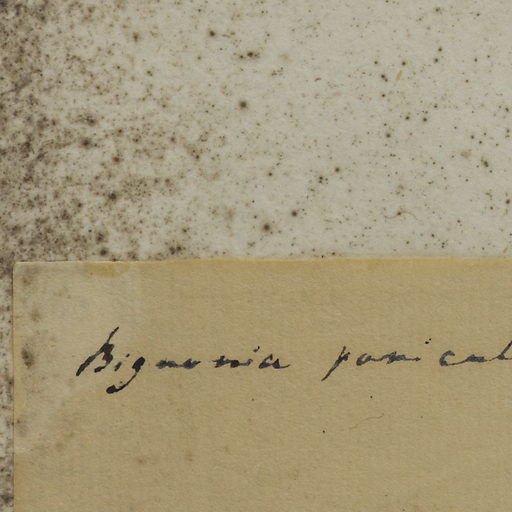 Bignonia panicul